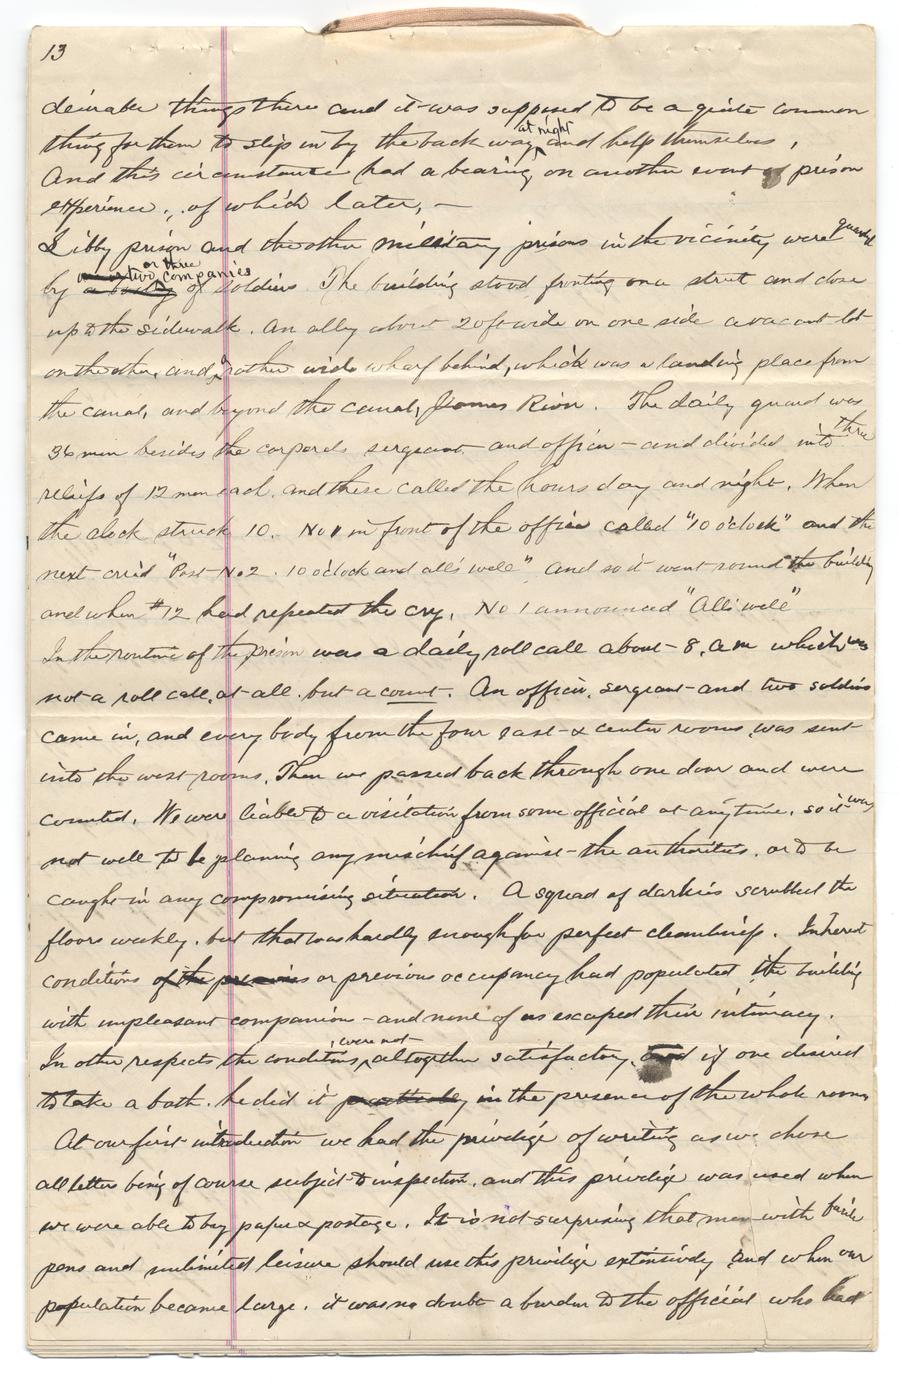 13
desirable things there and it was supposed to be a quite common
thing for them to slip in by the back way at night and help themselves,
And this circumstance had a bearing on another event of prison
experience, of which later, —
Libby prison and the other military prisons in the vicinity were guarded
by a body two or three companies of soldiers. The building stood fronting on a street and close
up to the sidewalk. An ally about 20 ft wide on one side a vacant lot
on the other, and a rather wide wharf behind, which was a landing place from
the canal, and beyond the canal, James River. The daily guard was
36 men besides the corporals sergeant and officer — and divided into three
reliefs of 12 men each, and these called the hours day and night. When
the clock struck 10. No 1 in front of the office called "10 o'clock" and the
next cried "Post No 2. 10 o'clock and all's well". And so it went round the building
and when #12 had repeated the cry, No 1 announced "All's well"
In the routine of the prison was a daily roll call about 8. a m which was
not a roll call, at all. but a count. An officer, sergeant and two soldiers
came in, and every body from the four east & center rooms was sent
into the west rooms. Then we passed back through one door and were
counted. We were liable to a visitation from some official at any time, so it was
not well to be planning any mischief against the authorities, or to be
caught in any compromising situation. A squad of darkies scrubbed the
floors weekly, but that was hardly enough for perfect cleanliness. Inherent
conditions of the premises or previous occupancy had populated the building
with unpleasant companion — and none of us escaped their intimacy.
In other respects the conditions, were not altogether satisfactory, and if one desired
to take a bath, he did it practically in the presence of the whole room
At our first introduction we had the privilige of writing as we chose
all letters being of course subject to inspection, and this privilige was used when
we were able to buy paper & postage. It is not surprising that men with facile
pens and unlimited leisure should use this privilige extensively and when our
population became large, it was no doubt a burden to the official who had